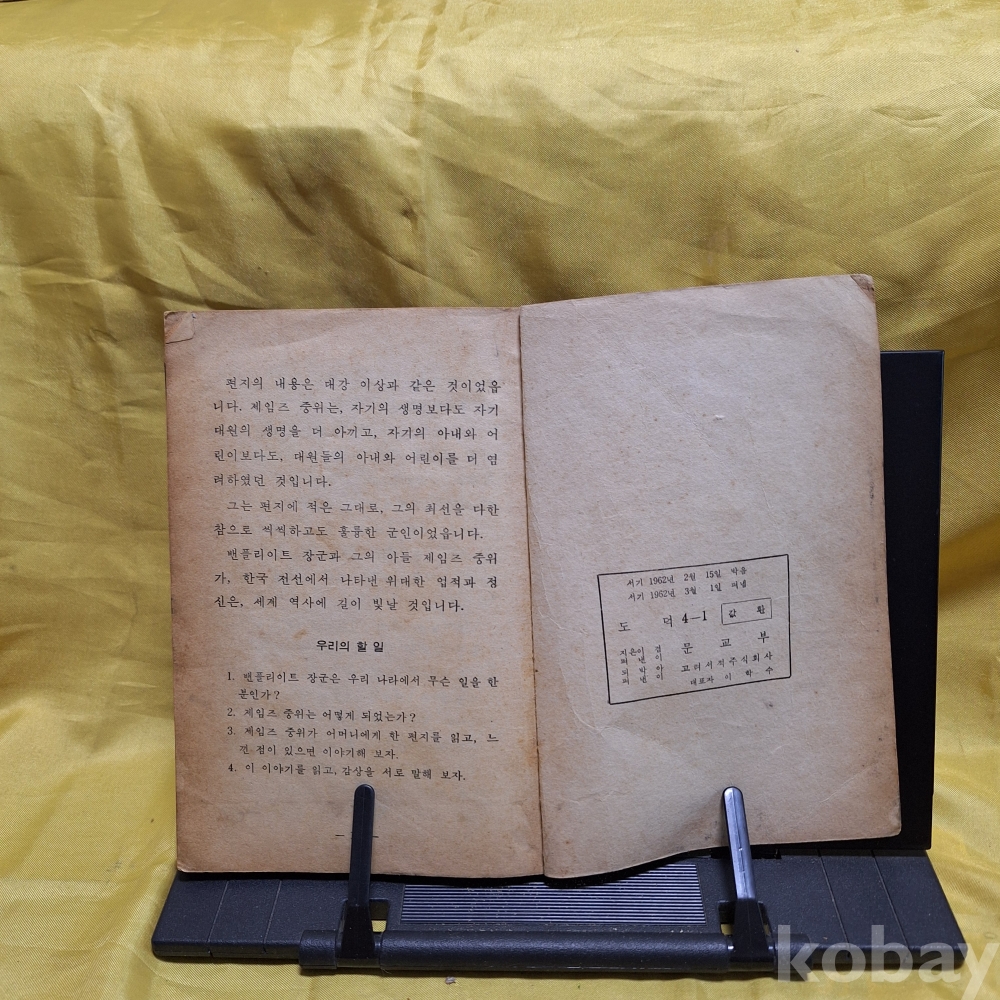 편지의 내용은 대강 이상과 같은 것이었읍
니다. 제임즈 중위는, 자기의 생명보다도 자기
대원의 생명을 더 아끼고, 자기의 아내와 어
린이보다도, 대원들의 아내와 어린이를 더 염
려하였던 것입니다.
그는 편지에 적은 그대로, 그의 최선을 다한
참으로 씩씩하고도 훌륭한 군인이었읍니다.
밴플리이트 장군과 그의 아들 제임즈 중위
가, 한국 전선에서 나타낸 위대한 업적과 정
신은, 세계 역사에 길이 빛날 것입니다.
우리의 할 일
1. 밴플리이트 장군은 우리 나라에서 무슨 일을 한
분인가?
2. 제임즈 중위는 어떻게 되었는가?
3. 제임즈 중위가 어머니에게 한 편지를 읽고, 느
낀 점이 있으면 이야기해 보자.
4. 이 이야기를 읽고, 감상을 서로 말해 보자.
서기 1962년 2월 15일 박음
서기 1962년 3월 1일 펴냄
도 덕 4—1 값 환
지은이 겸
펴낸이 문교부
되박아
펴낸이 고려서적주식회사
대표자 이학수
kobay